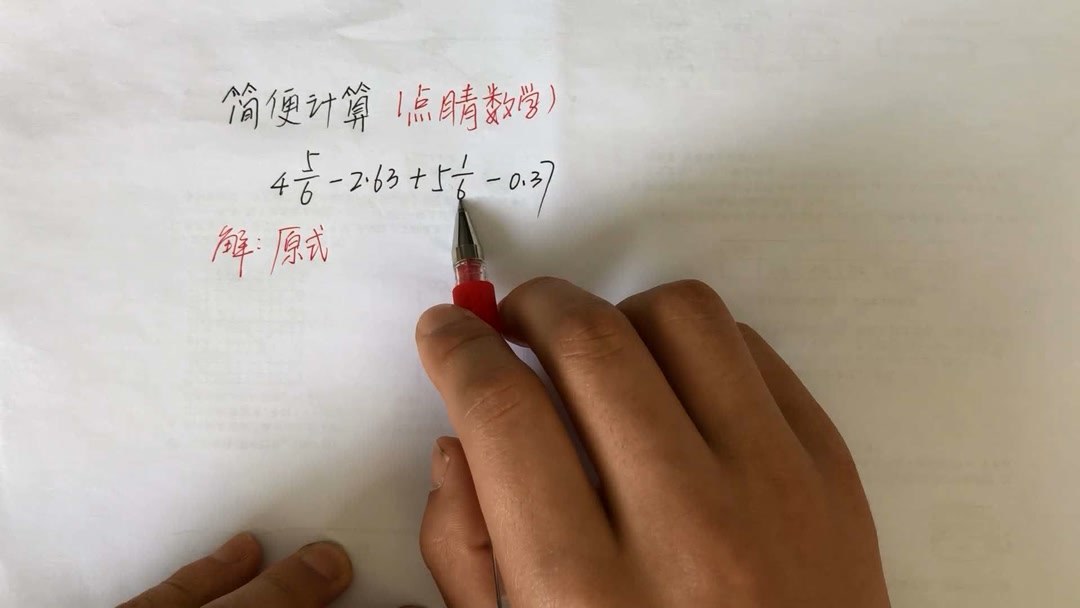 简便计算(点睛数学)
4 5/6 - 2.63 + 5 1/6 - 0.37
解：原式